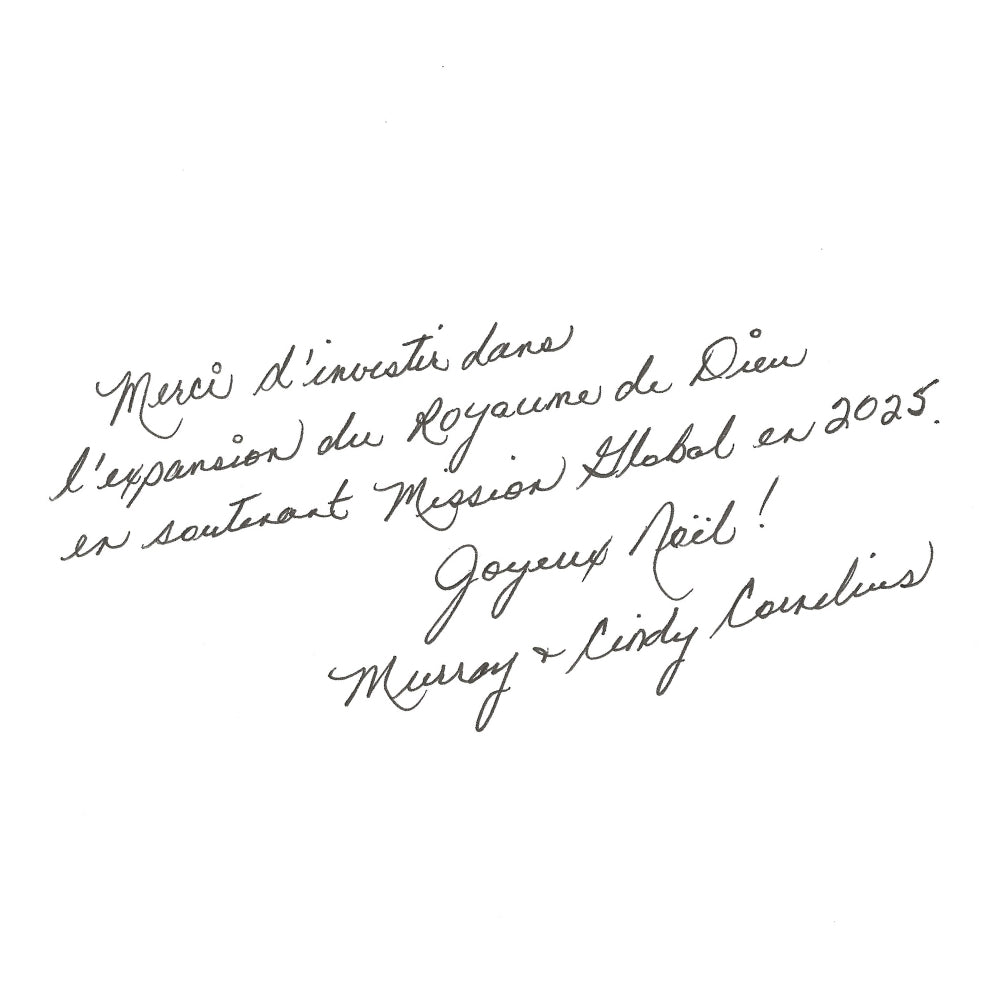 Merci d'investir dans
l'expansion du Royaume de Dieu
en soutenant Mission Global en 2025.
Joyeux Noël!
Murray + Cindy Cornelius